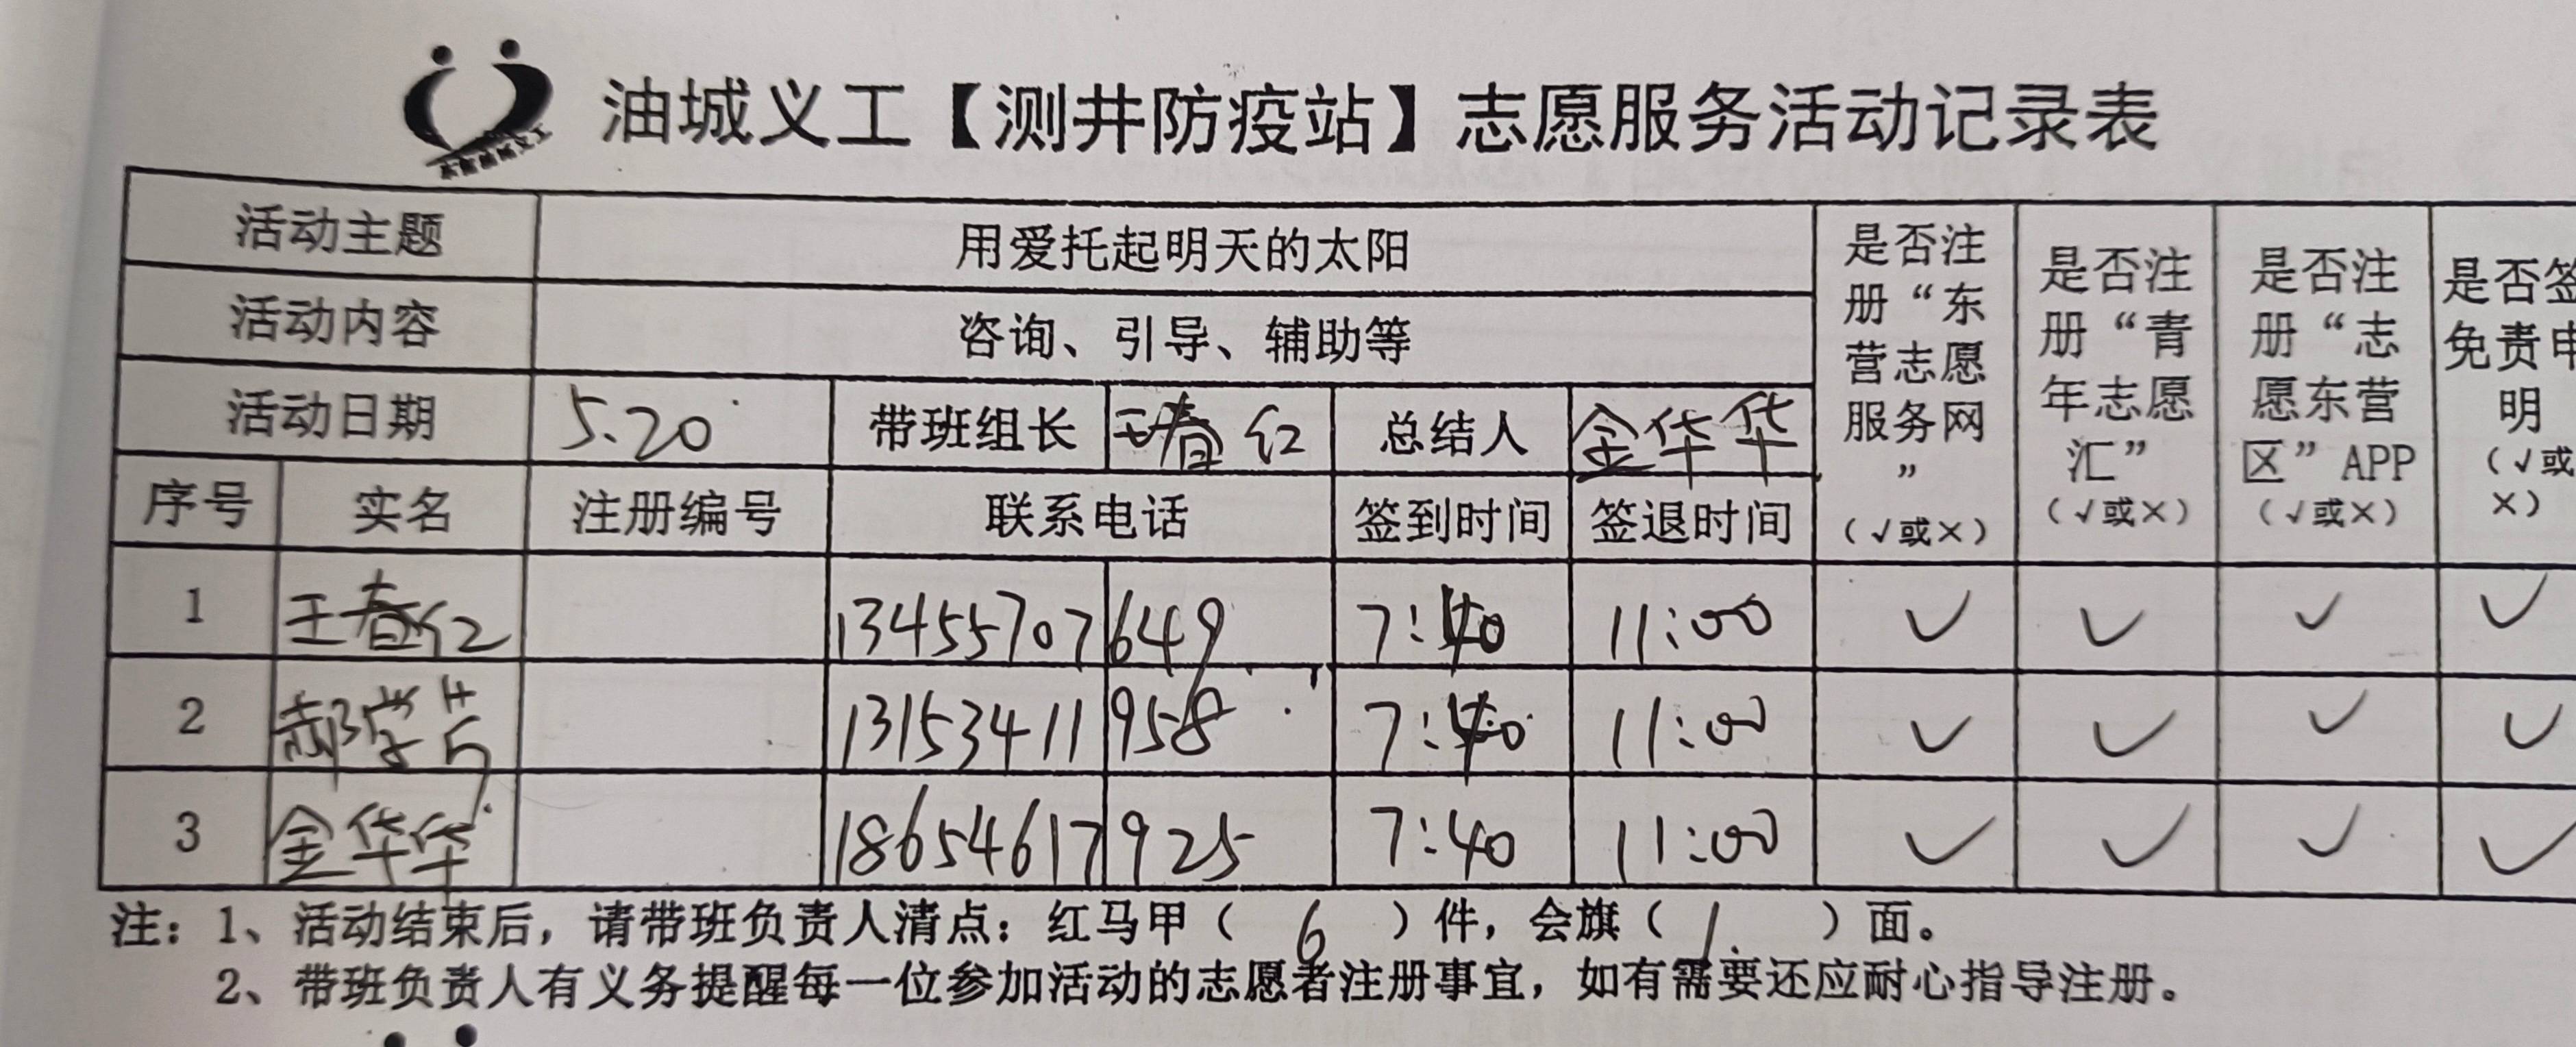 油城义工【测井防疫站】志愿服务活动记录表
活动主题 用爱托起明天的太阳 是否注册“东营志愿服务网”（√或×） 是否注册“青年志愿汇”（√或×） 是否注册“志愿东营区”APP（√或×） 是否签免责申明（√或×）
活动内容 咨询、引导、辅助等
活动日期 5.20 带班组长 王春红 总结人 金华华
序号 实名 注册编号 联系电话 签到时间 签退时间
1 王春红 13455707649 7:40 11:00 ✓ ✓ ✓ ✓
2 郝学芳 13153411958 7:40 11:00 ✓ ✓ ✓ ✓
3 金华华 18654617925 7:40 11:00 ✓ ✓ ✓ ✓
注：1、活动结束后，请带班负责人清点：红马甲（6）件，会旗（1）面。
2、带班负责人有义务提醒每一位参加活动的志愿者注册事宜，如有需要还应耐心指导注册。